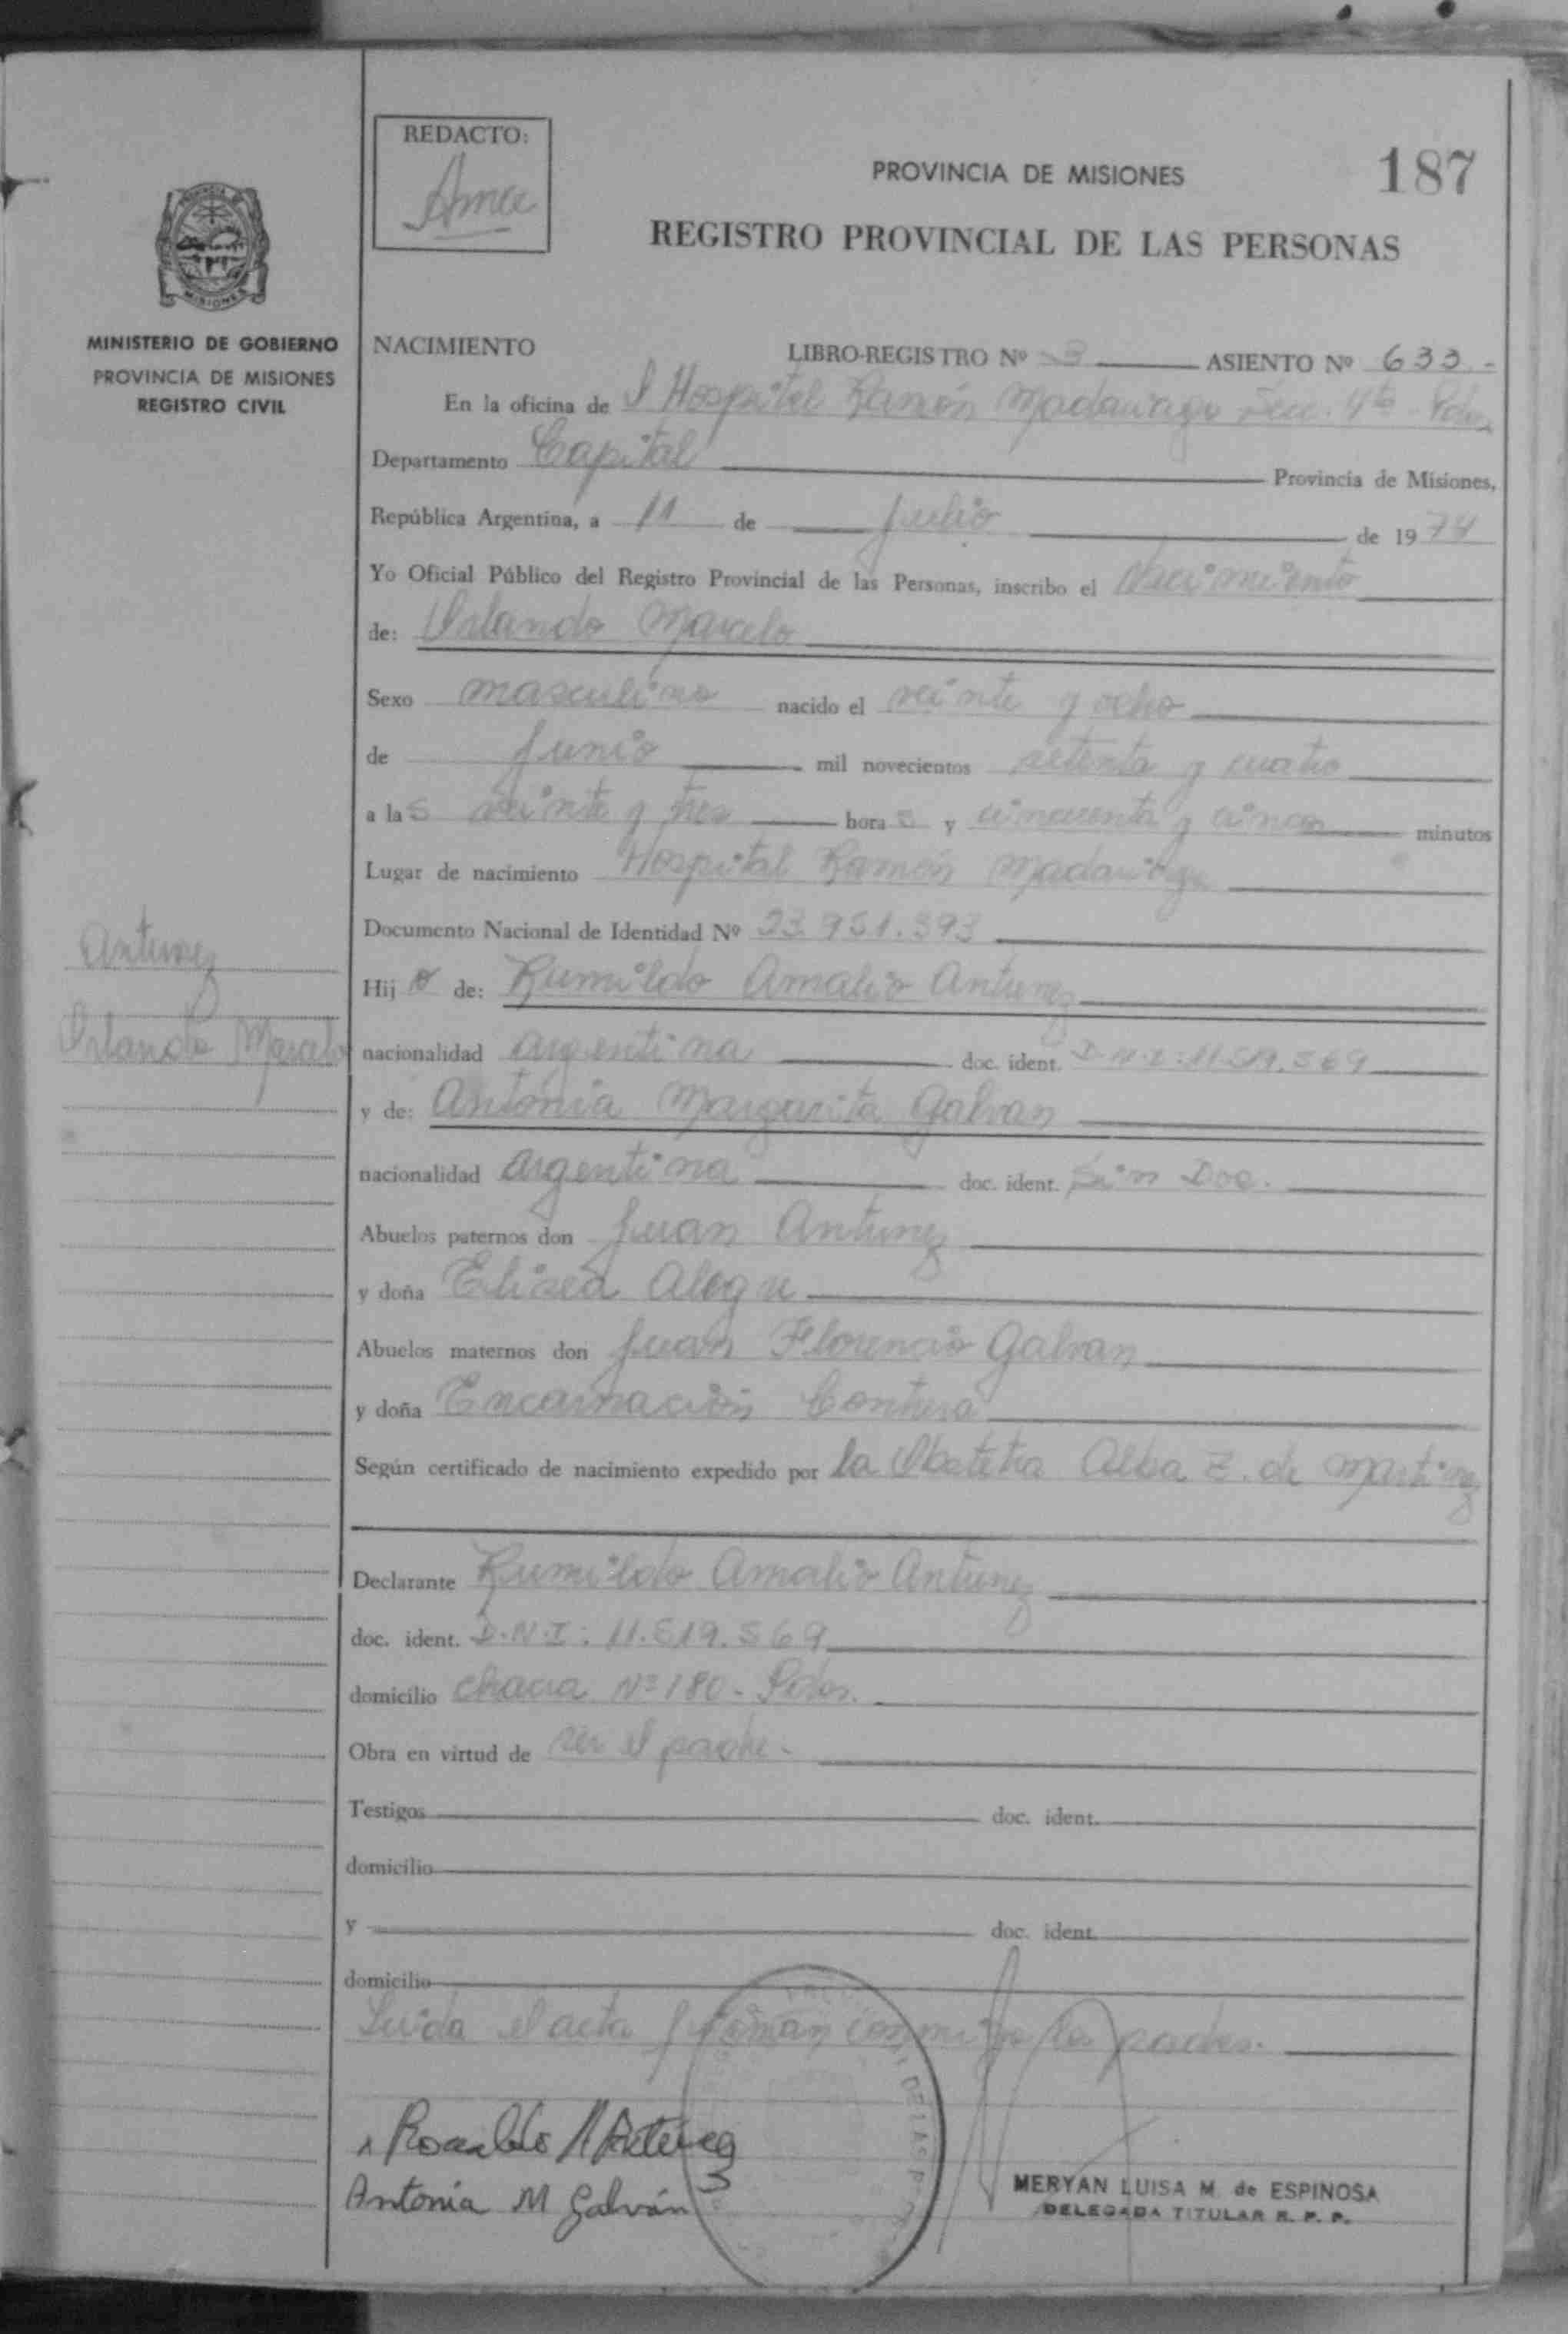 REDACTO:
Ama
PROVINCIA DE MISIONES
187
REGISTRO PROVINCIAL DE LAS PERSONAS
MISIONES
MINISTERIO DE GOBIERNO
PROVINCIA DE MISIONES
REGISTRO CIVIL
NACIMIENTO LIBRO-REGISTRO Nº 3 ASIENTO Nº 633.-
En la oficina de Hospital Ramón Madariaga Secc. 4ta - Pdas.
Departamento Capital Provincia de Misiones,
República Argentina, a 11 de Julio de 1974
Yo Oficial Público del Registro Provincial de las Personas, inscribo el Nacimiento
de: Orlando Marcelo
Sexo masculino nacido el veinte y ocho
de Junio mil novecientos setenta y cuatro
a las veinte y tres horas y cincuenta y cinco minutos
Lugar de nacimiento Hospital Ramón Madariaga
Documento Nacional de Identidad Nº 23.951.393
Antunez
Orlando Marcelo
Hijo de: Rumildo Amalio Antunez
nacionalidad argentina doc. ident. D.N.I: 11.519.569
y de: Antonia Margarita Galvan
nacionalidad argentina doc. ident. Sin Doc.
Abuelos paternos don Juan Antunez
y doña Elisea Alegre
Abuelos maternos don Juan Florencio Galvan
y doña Encarnación Contrera
Según certificado de nacimiento expedido por la Obstetra Alba Z. de Martinez
Declarante Rumildo Amalio Antunez
doc. ident. D.N.I: 11.519.569
domicilio chacra Nº 180 - Pdas.
Obra en virtud de ser el padre.-
Testigos doc. ident.
domicilio
y doc. ident.
domicilio
Leida el acta firman conmigo los padres.
Antonia M Galván
MERYAN LUISA M. de ESPINOSA
DELEGADA TITULAR R. P. P.